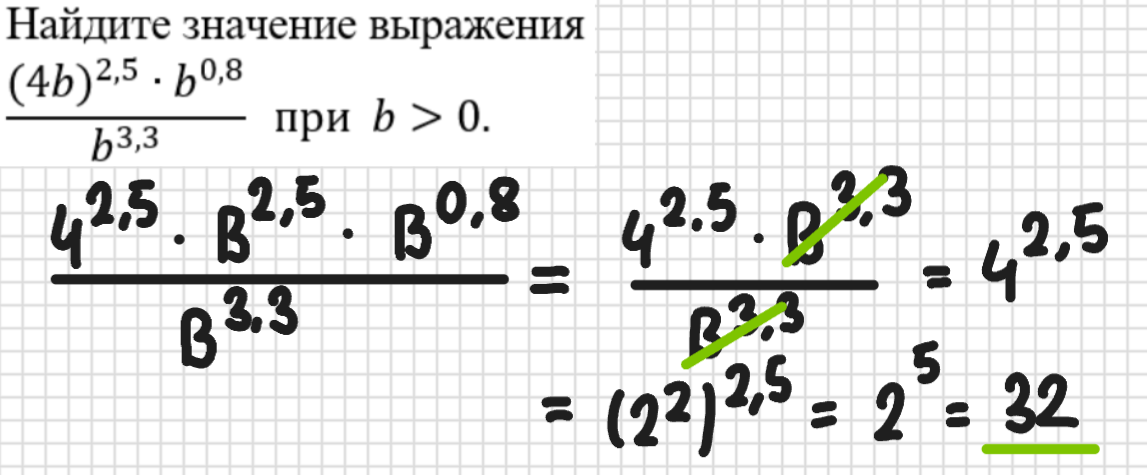 Найдите значение выражения
(4b)^2,5 · b^0,8
b^3,3
при b > 0.
4^2,5 · B^2,5 · B^0,8
B^3,3
=
4^2.5 · B^3,3
B^3,3
= 4^2,5
= (2^2)^2,5 = 2^5 = 32